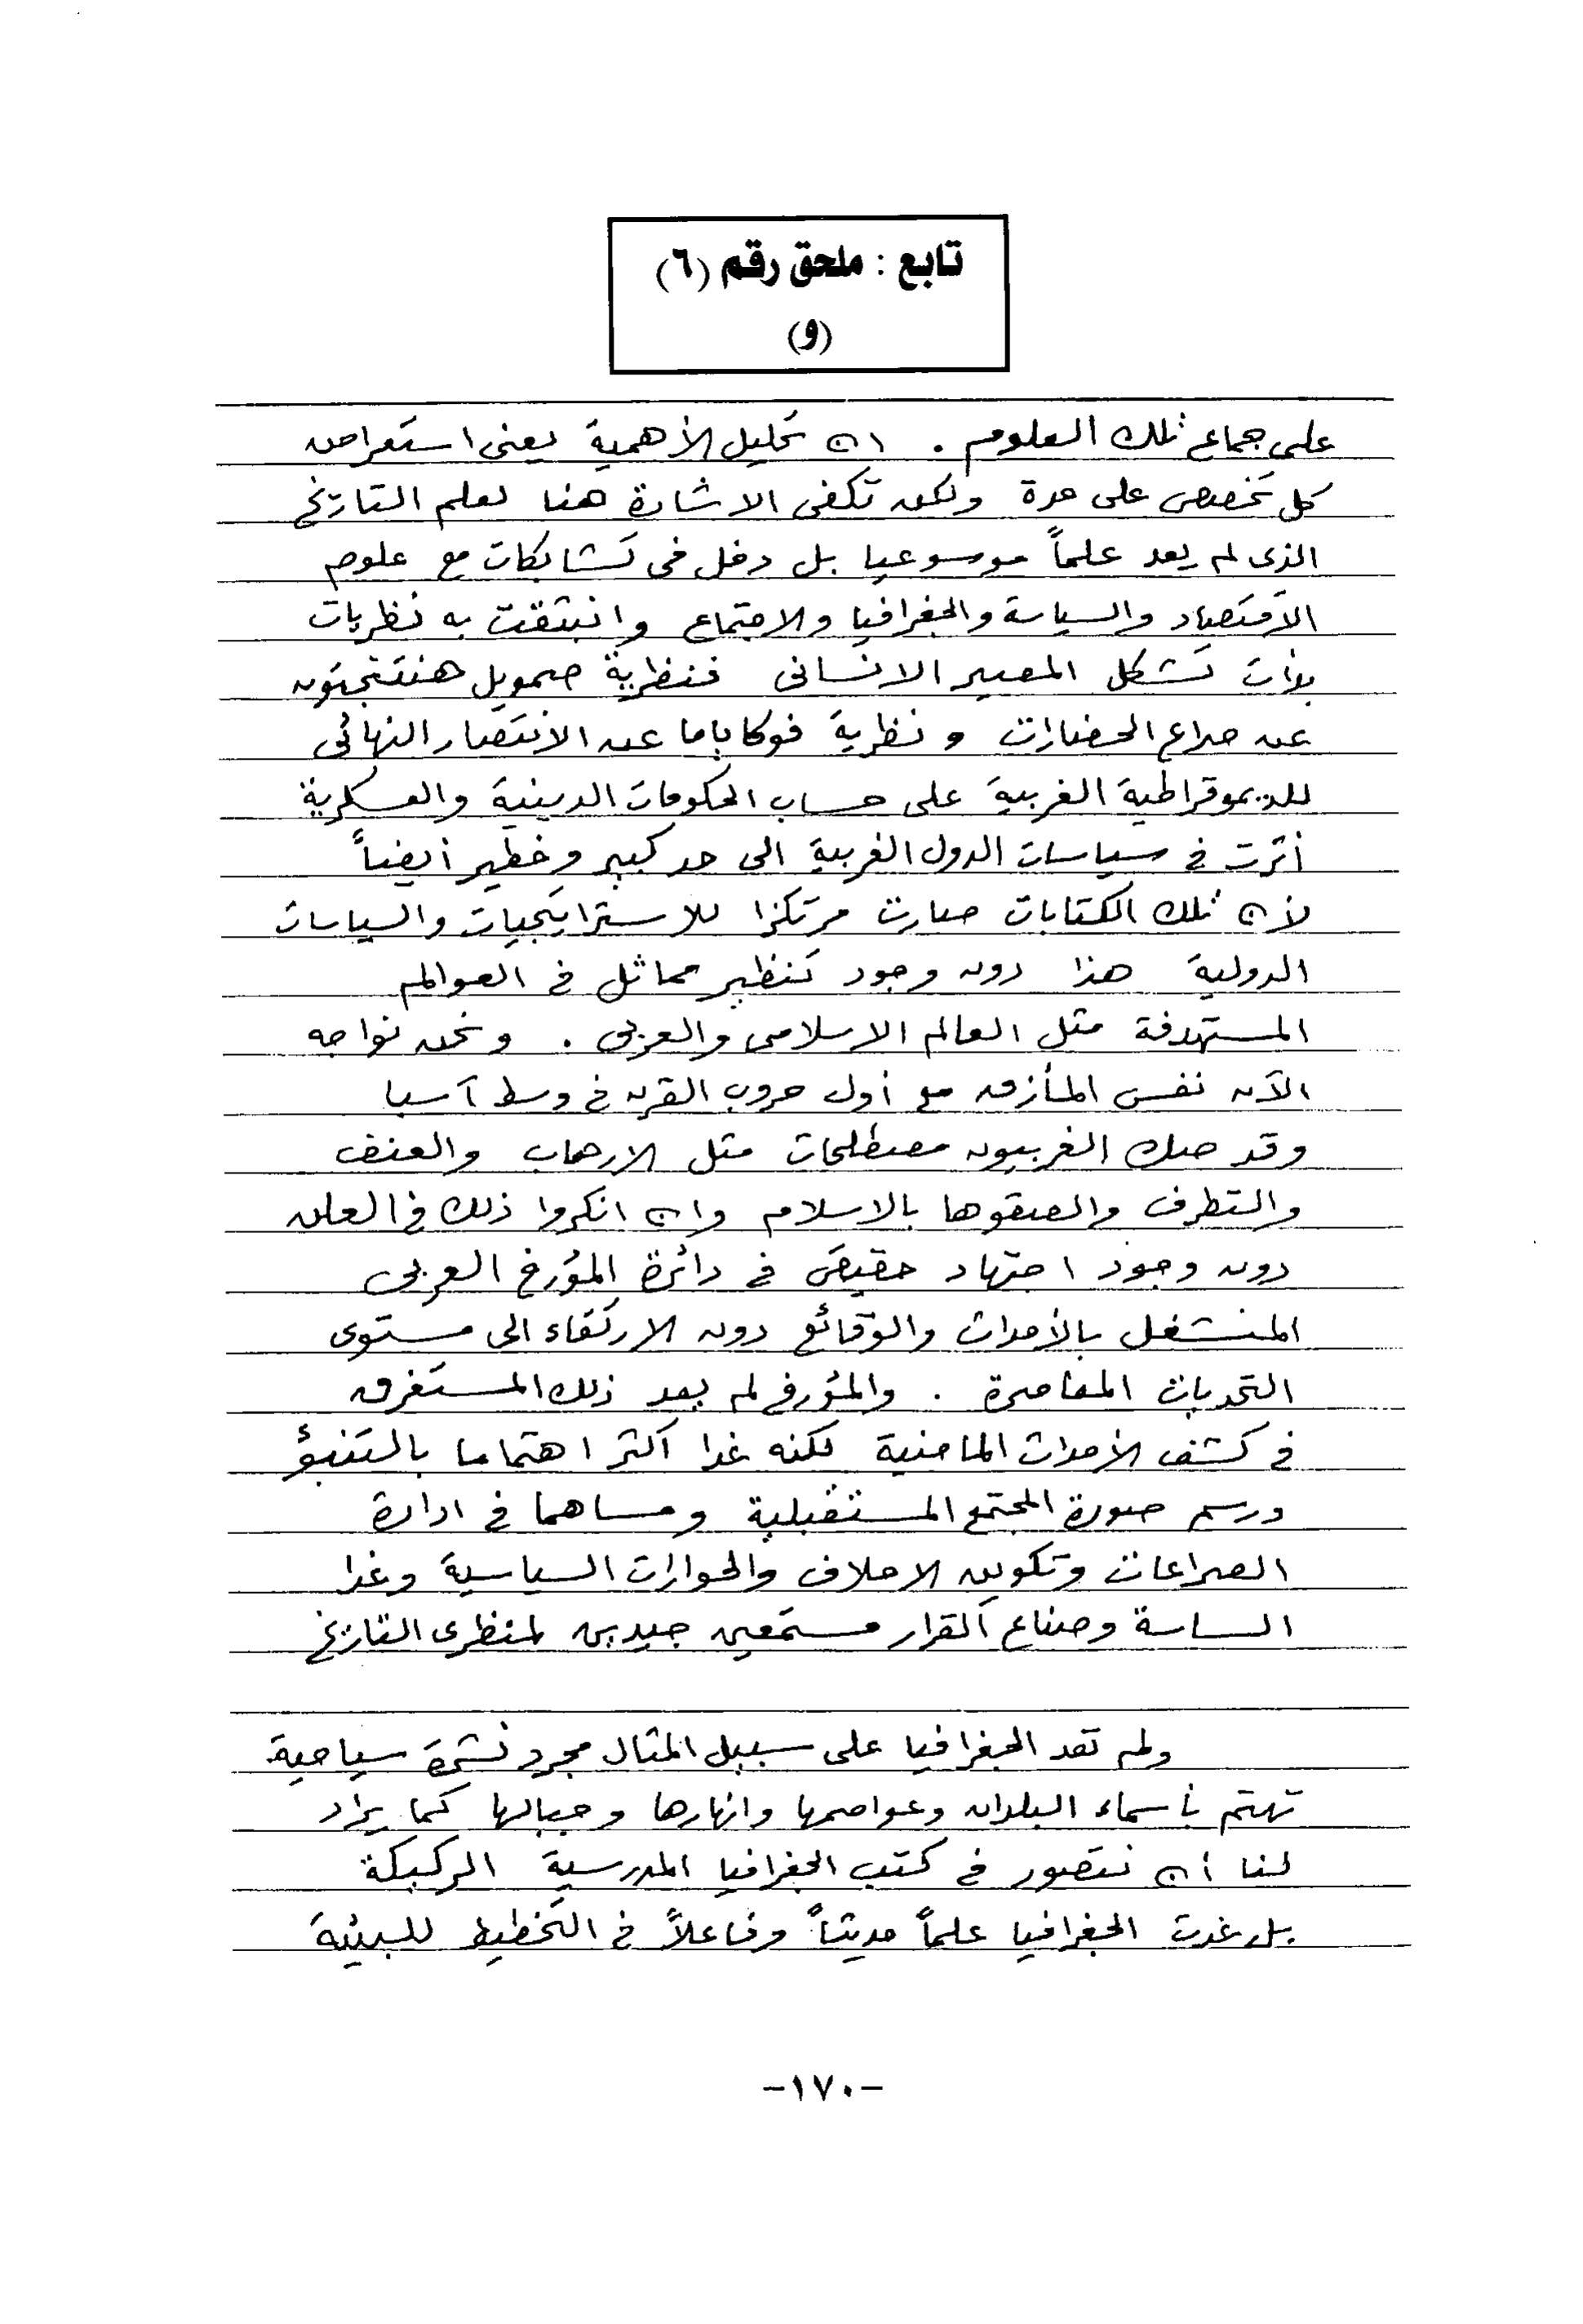 تابع : ملحق رقم (٦)
(و)
على جماع تلك العلوم . ان تحليل الأهمية يعنى استعراض
كل تخصص على حدة ولكن تكفى الاشارة هنا لعلم التاريخ
الذى لم يعد علماً موسوعيا بل دخل فى تشابكات مع علوم
الاقتصاد والسياسة والجغرافيا والاجتماع وانبثقت به نظريات
بدأت تشكل المصير الانسانى فنظرية صمويل هنتنجتون
عن صراع الحضارات ونظرية فوكاياما عن الانتصار النهائى
للديموقراطية الغربية على حساب الحكومات الدينية والعسكرية
أثرت فى سياسات الدول الغربية الى حد كبير وخطير أيضاً
لأن تلك الكتابات صارت مرتكزا للاستراتيجيات والسياسات
الدولية هذا دون وجود تنظير مماثل فى العوالم
المستهدفة مثل العالم الاسلامى والعربى . ونحن نواجه
الآن نفس المأزق مع أول حروب القرن فى وسط آسيا
وقد صك الغربيون مصطلحات مثل الارهاب والعنف
والتطرف والصقوها بالاسلام وان انكروا ذلك فى العلن
دون وجود اجتهاد حقيقى فى دائرة المؤرخ العربى
المنشغل بالأحداث والوقائع دون الارتقاء الى مستوى
التحديات المعاصرة . والمؤرخ لم يعد ذلك المستغرق
فى كشف الأحداث الماضية لكنه غدا أكثر اهتماما بالتنبؤ
ورسم صورة المجتمع المستقبلية ومساهما فى ادارة
الصراعات وتكوين الاحلاف والحوارات السياسية وغدا
الساسة وصناع القرار مستمعين جيدين لمنظرى التاريخ
ولم تعد الجغرافيا على سبيل المثال مجرد نشرة سياحية
تهتم بأسماء البلدان وعواصمها وانهارها وجبالها كما يراد
لنا أن نتصور فى كتب الجغرافيا المدرسية الركيكة
بل غدت الجغرافيا علماً حديثاً وفاعلاً فى التخطيط للبيئة
-١٧٠-